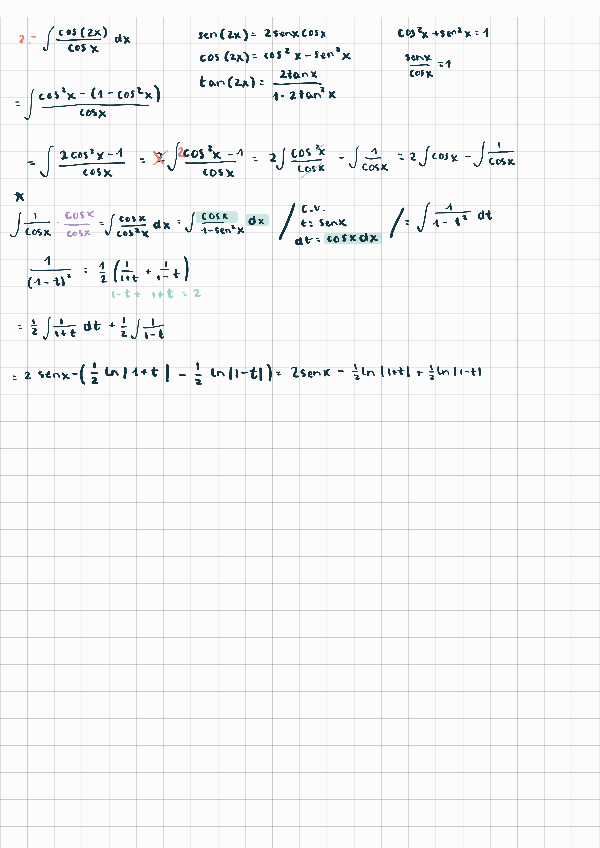 2.- ∫ cos(2x)/cosx dx    sen(2x) = 2senxcosx    cos²x + sen²x = 1
cos(2x) = cos²x - sen²x    senx/cosx = 1
tan(2x) = 2tanx/(1-2tan²x)
= ∫ (cos²x - (1-cos²x))/cosx
= ∫ (2cos²x-1)/cosx = ∫ (2cos²x-1)/cosx = 2∫ cos²x/cosx - ∫ 1/cosx = 2∫cosx - ∫ 1/cosx
*
∫ 1/cosx · cosx/cosx = ∫ cosx/cos²x dx = ∫ cosx/(1-sen²x) dx / C.V. t = senx dt = cosxdx / = ∫ 1/(1-t²) dt
1/(1-t)² = 1/2 (1/(1+t) + 1/(1-t))
1-t + 1+t = 2
= 1/2 ∫ 1/(1+t) dt + 1/2 ∫ 1/(1-t)
= 2 senx - (1/2 ln|1+t| - 1/2 ln|1-t|) = 2senx - 1/2 ln|1+t| + 1/2 ln|1-t|